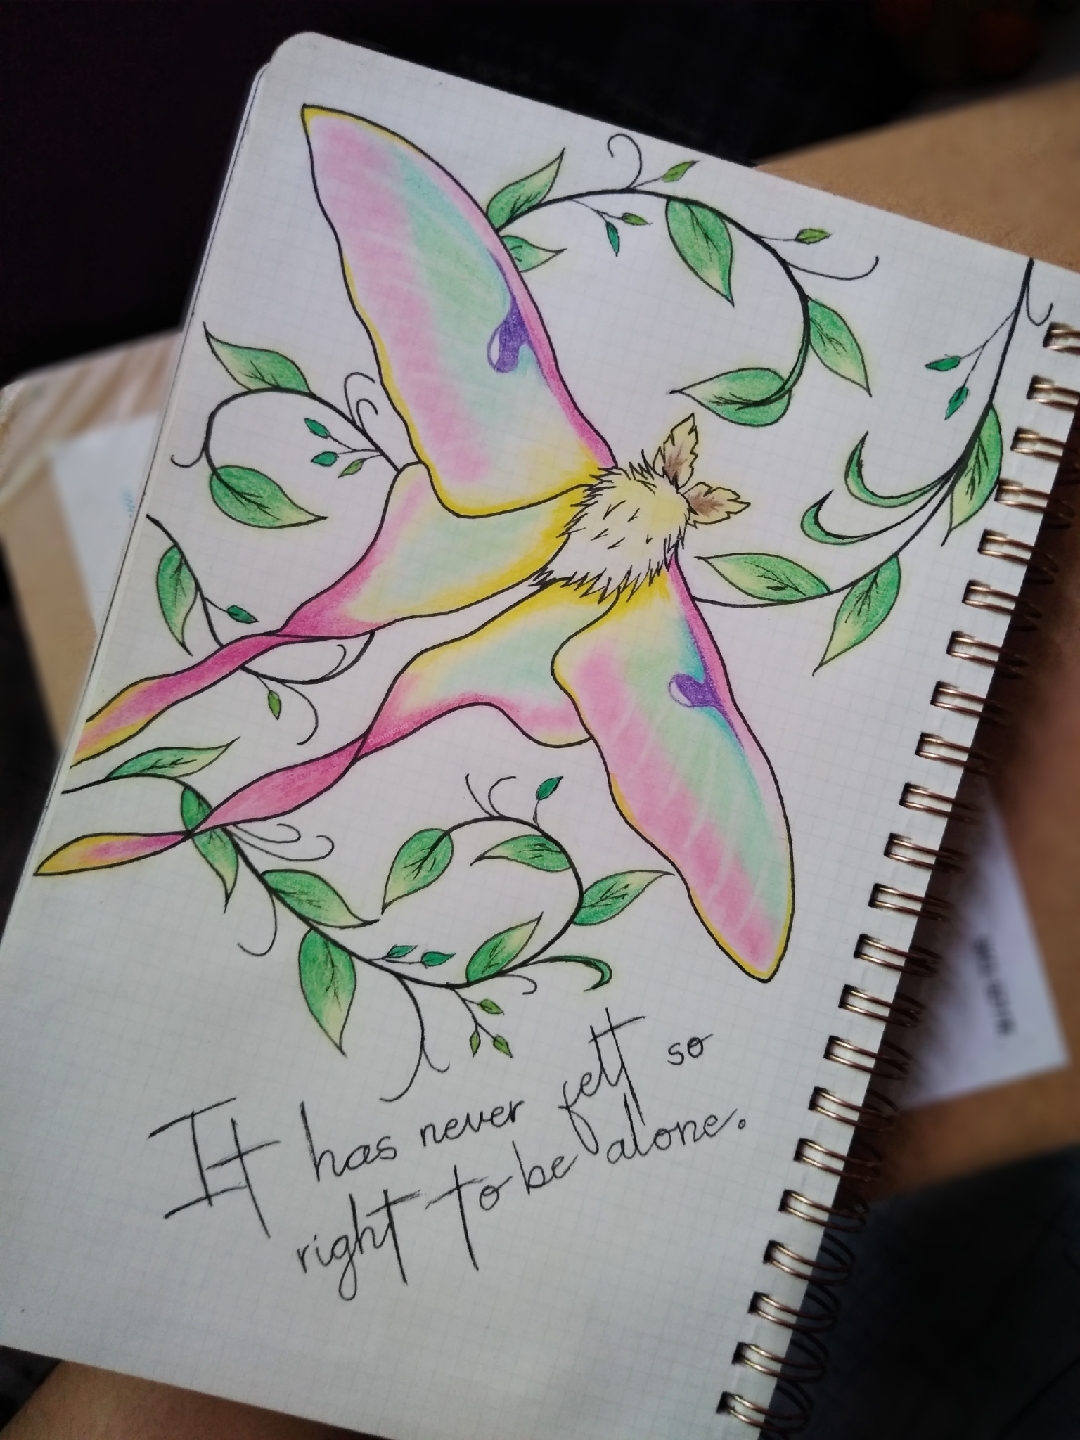 It has never felt so
right to be alone.